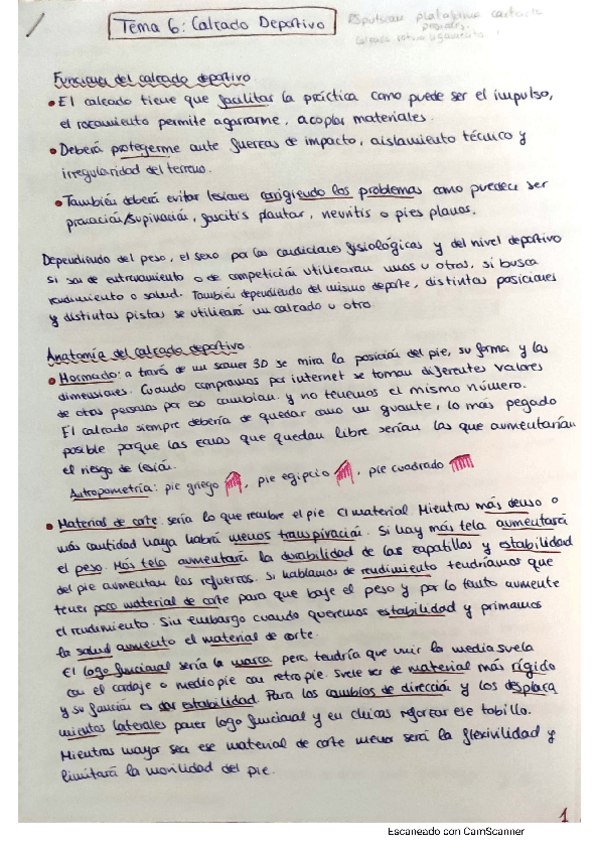 Tema 6: Calzado Deportivo
Funciones del calzado deportivo
• El calzado tiene que facilitar la práctica como puede ser el impulso,
el rozamiento permite agarrarme, acoplar materiales.
• Deberá protegerme ante fuerzas de impacto, aislamiento técnico y
irregularidad del terreno.
• También deberá evitar lesiones corrigiendo los problemas como puedece ser
pronación/supinación, fascitis plantar, neuritis o pies planos.
Dependiendo del peso, el sexo por las condiciones fisiológicas y del nivel deportivo
si son de entrenamiento o de competición utilizaran unas u otras, si busca
rendimiento o salud. También dependiendo del mismo deporte, distintas posiciones
y distintas pistas se utilizará un calzado u otro.
Anatomía del calzado deportivo
• Hormado: a través de un scaner 3D se mira la posición del pie, su forma y las
dimensiones. Cuando compramos por internet se toman diferentes valores
de otras personas por eso cambian y no tenemos el mismo número.
El calzado siempre debería de quedar como un guante, lo más pegado
posible porque las zonas que quedan libre serían las que aumentarían
el riesgo de lesión.
Antropometría: pie griego, pie egipcio, pie cuadrado
• Material de corte: sería lo que recubre el pie el material. Mientras más denso o
más cantidad haya habrá menos transpiración. Si hay más tela aumentará
el peso. Más tela aumentará la durabilidad de las zapatillas y estabilidad
del pie aumentan los refuerzos. Si hablamos de rendimiento tendríamos que
tener poco material de corte para que baje el peso y por lo tanto aumente
el rendimiento. Sin embargo cuando queremos estabilidad y primamos
la salud aumento el material de corte.
El logo funcional sería la marca pero tendría que unir la mediasuela
con el cordaje o mediopie con retropie. Suele ser de material más rígido
y su función es dar estabilidad. Para los cambios de dirección y los desplaza
mientos laterales poner logo funcional y en chicas reforzar ese tobillo.
Mientras mayor sea ese material de corte menor será la flexivilidad y
limitará la movilidad del pie.
1
Escaneado con CamScanner